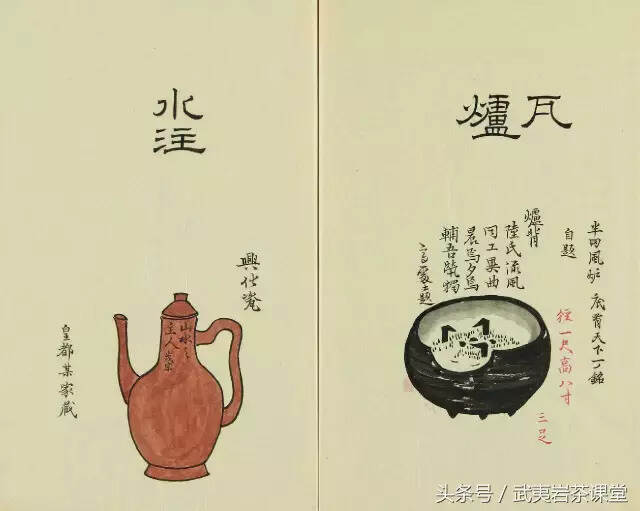 瓦爐
半田風炉 底背天下一丁銘
自題
徑一尺高八寸
三足
爐背
陸氏流風
同工異曲
晨焉夕焉
輔吾煢獨
題
水注
山水
主人
皇都某家蔵
头条号 / 武夷岩茶课堂